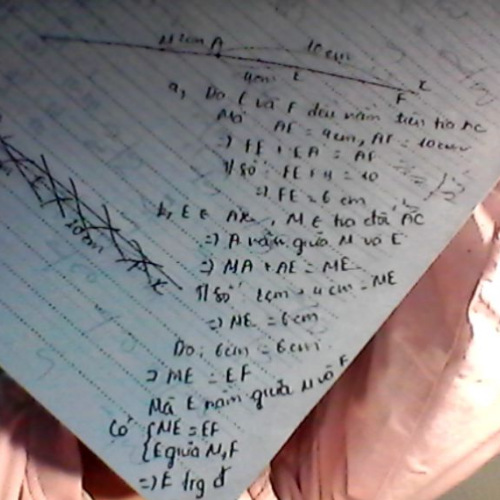 A 10cm
4cm E
F x
a, Do E và F đều nằm trên tia
Mà AE = 4cm, AF = 10cm
=> FE + EA = AF
T/số: FE + 4 = 10
=> FE = 6 cm
b, E ∈ Ax, M ∈ tia đối
=> A nằm giữa M và E
=> MA + AE = ME
T/số: 2cm + 4cm = ME
=> ME = 6cm
Do: 6cm = 6cm
=> ME = EF
Mà E nằm giữa M và F
Có { ME = EF
{ E giữa M, F
=> E trg đ
10cm